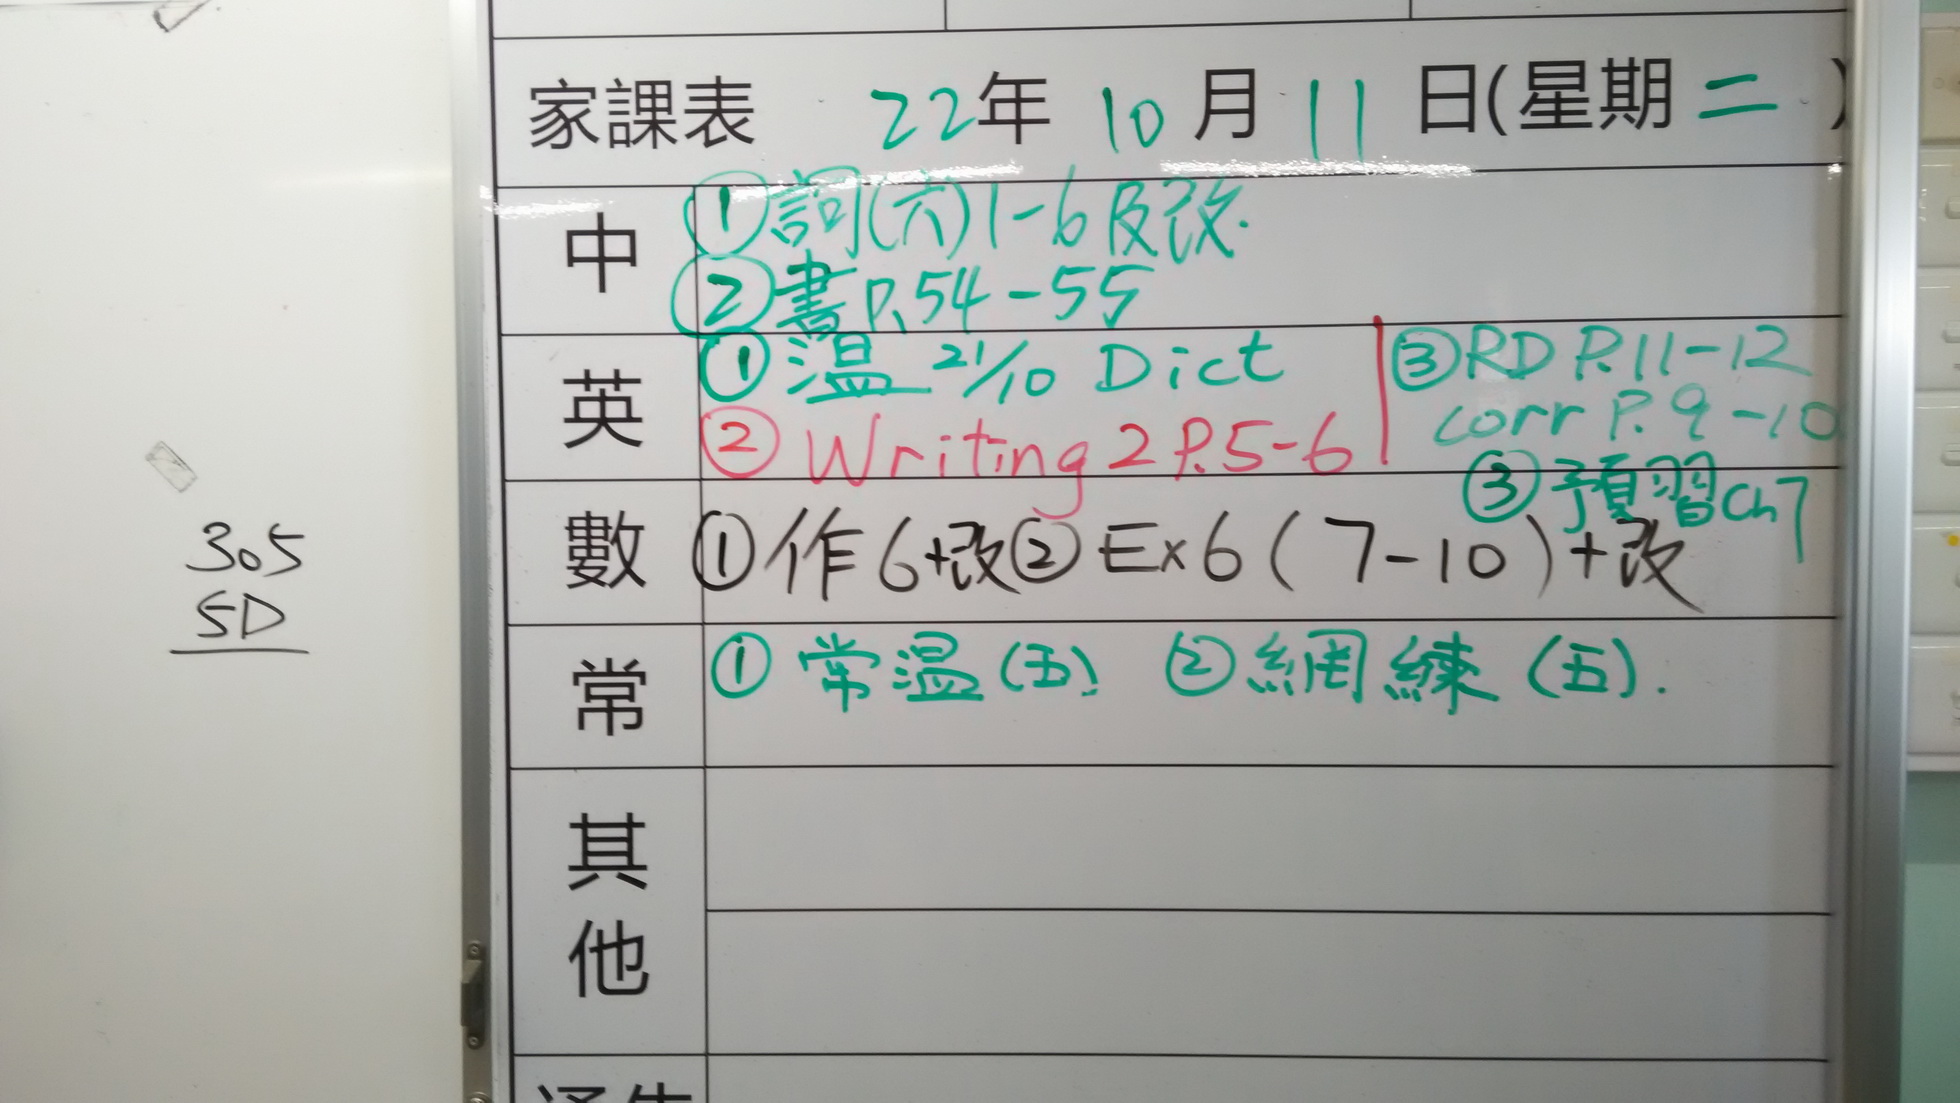 家課表 22年 10月 11日(星期二)
中
①詞(六)1-6及改.
②書P.54-55
英
①温 21/10 Dict
②Writing 2 P.5-6
③RD P.11-12
corr P.9-10
數
③預習Ch7
①作6+改②Ex6(7-10)+改
常
①常温(五) ②網練(五).
其他
305
5D